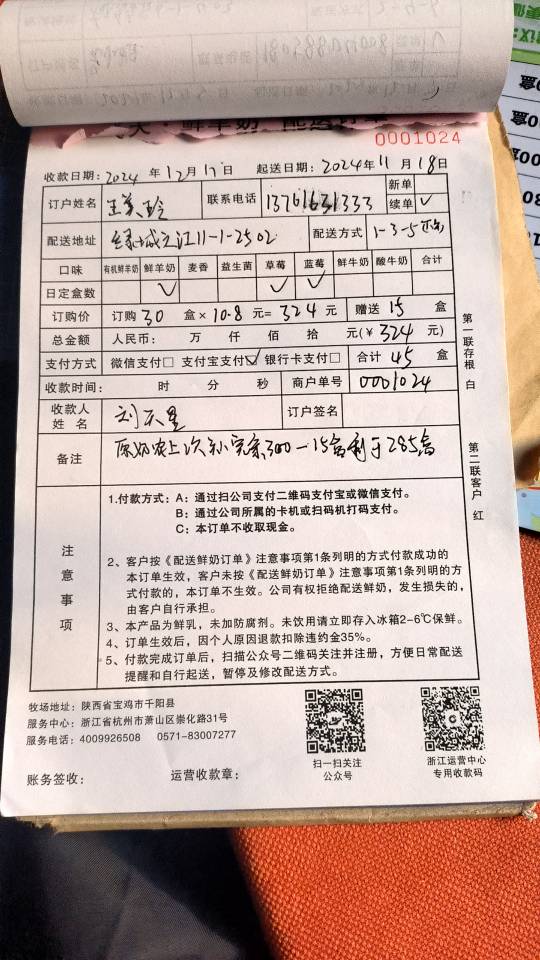 鲜羊奶 配送订单
0001024
收款日期：2024年12月17日 起送日期：2024年11月18日
订户姓名 王美玲 联系电话 13761631333 新单
续单 ✓
配送地址 绿城之江11-1-2502 配送方式 1-3-5
口味 有机鲜羊奶 鲜羊奶 麦香 益生菌 草莓 蓝莓 鲜牛奶 酸牛奶 合计
日定盒数 ✓ ✓ ✓
订购价 订购30盒×10.8元=324元 赠送15盒
总金额 人民币： 万 仟 佰 拾 元(¥324元)
支付方式 微信支付□ 支付宝支付☑ 银行卡支付□ 合计45盒
收款时间： 时 分 秒 商户单号 0001024
收款人姓名 刘 订户签名
备注 300-15 285
注意事项
1.付款方式：A：通过扫公司支付二维码支付宝或微信支付。
B：通过公司所属的卡机或扫码机打码支付。
C：本订单不收取现金。
2、客户按《配送鲜奶订单》注意事项第1条列明的方式付款成功的
本订单生效，客户未按《配送鲜奶订单》注意事项第1条列明的方
式付款的，本订单不生效。公司有权拒绝配送鲜奶，发生损失的，
由客户自行承担。
3、本产品为鲜乳，未加防腐剂。未饮用请立即存入冰箱2-6℃保鲜。
4、订单生效后，因个人原因退款扣除违约金35%。
5、付款完成订单后，扫描公众号二维码关注并注册，方便日常配送
提醒和自行起送，暂停及修改配送方式。
第一联存根 白
第二联客户 红
牧场地址：陕西省宝鸡市千阳县
服务中心：浙江省杭州市萧山区崇化路31号
服务电话：4009926508 0571-83007277
扫一扫关注
公众号
浙江运营中心
专用收款码
账务签收： 运营收款章：